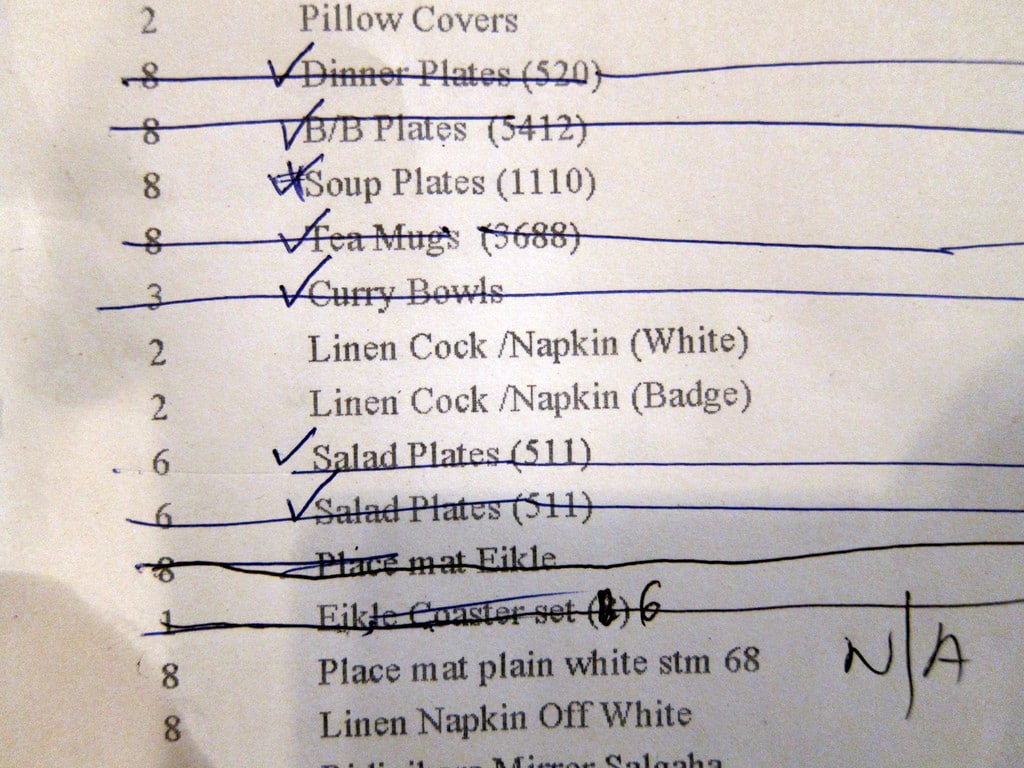 2 Pillow Covers
8 Dinner Plates (520)
8 B/B Plates (5412)
8 Soup Plates (1110)
8 Tea Mugs (3688)
3 Curry Bowls
2 Linen Cock /Napkin (White)
2 Linen Cock /Napkin (Badge)
6 Salad Plates (511)
6 Salad Plates (511)
8 Place mat Eikle
1 Eikle Coaster set ( ) 6
8 Place mat plain white stm 68 N/A
8 Linen Napkin Off White
Mirror Salgaha